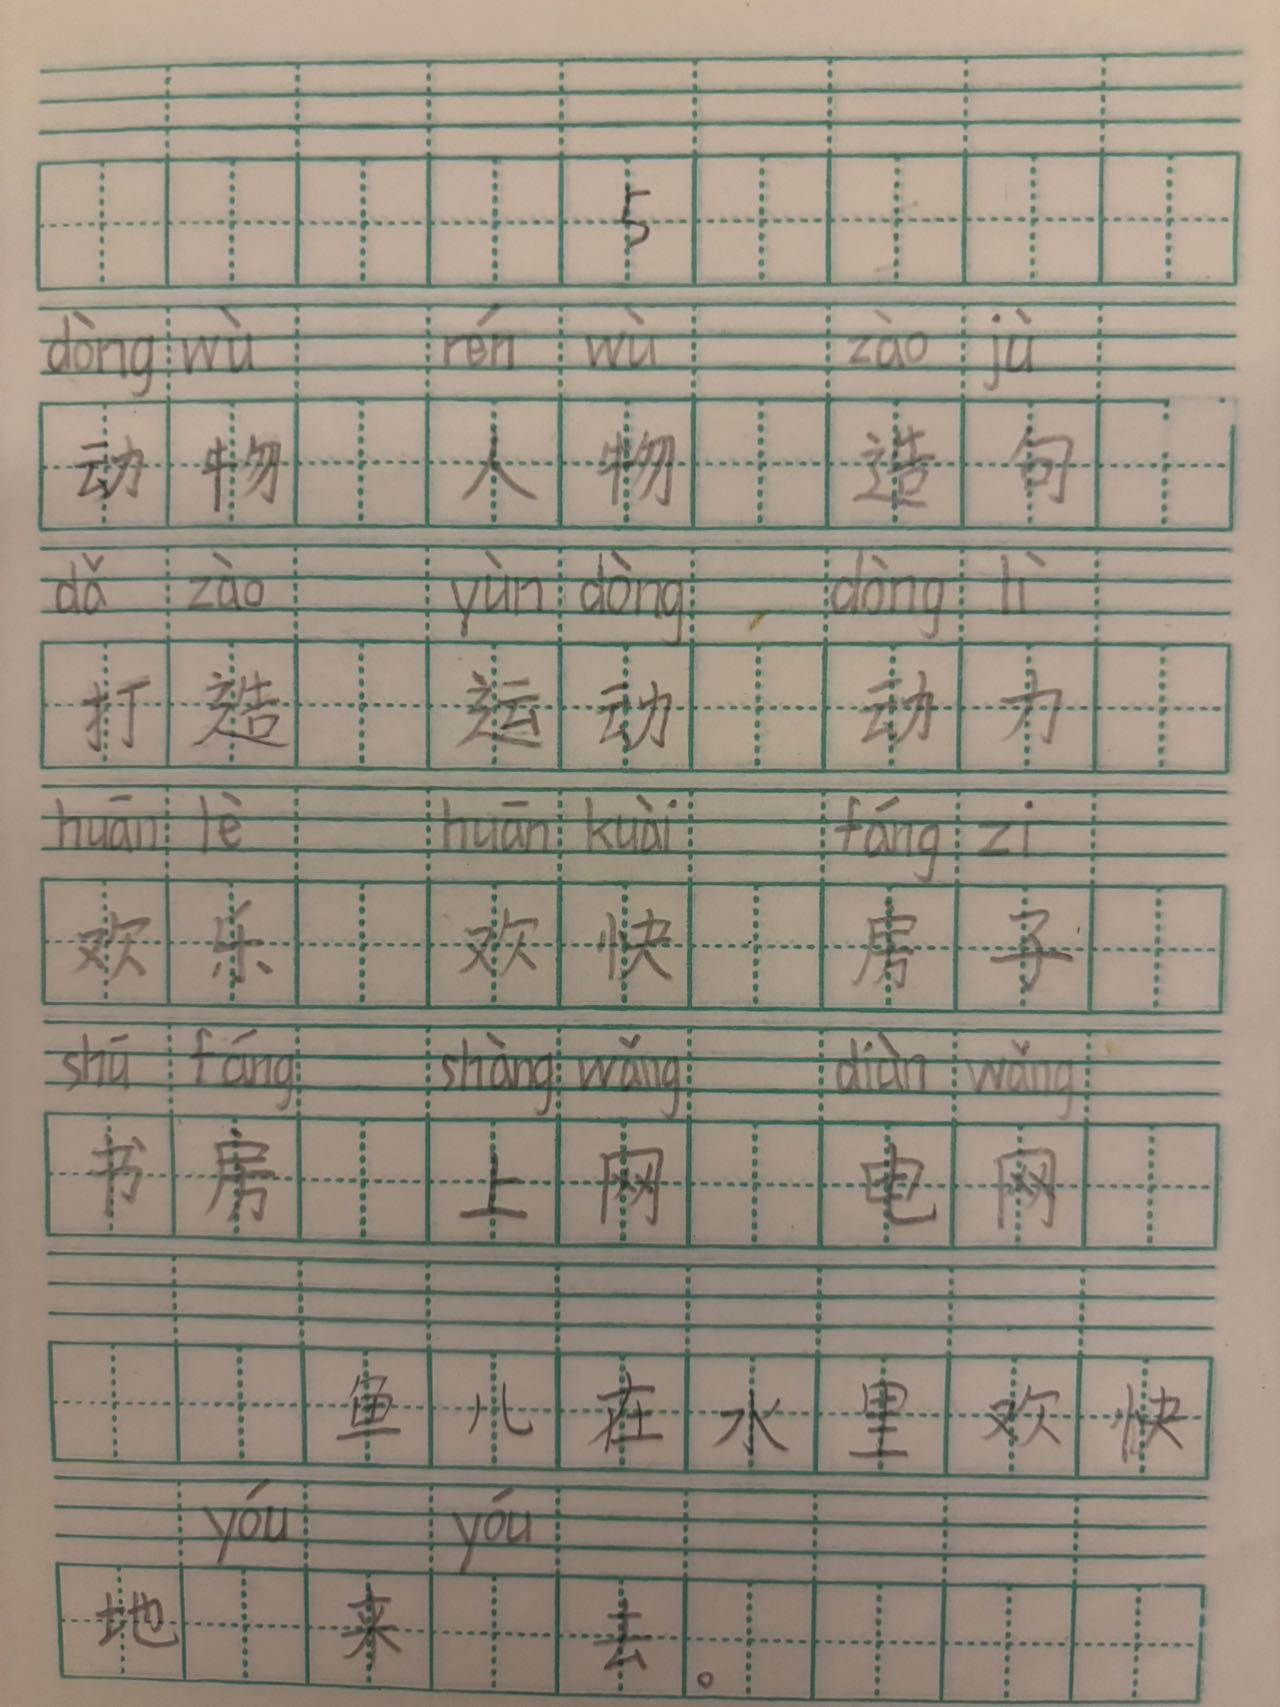 5
dòng wù rén wù zào jù
动物 人物 造句
dǎ zào yùn dòng dòng lì
打造 运动 动力
huān lè huān kuài fáng zi
欢乐 欢快 房子
shū fáng shàng wǎng diàn wǎng
书房 上网 电网
鱼儿在水里欢快
yóu yóu
地 来 去。